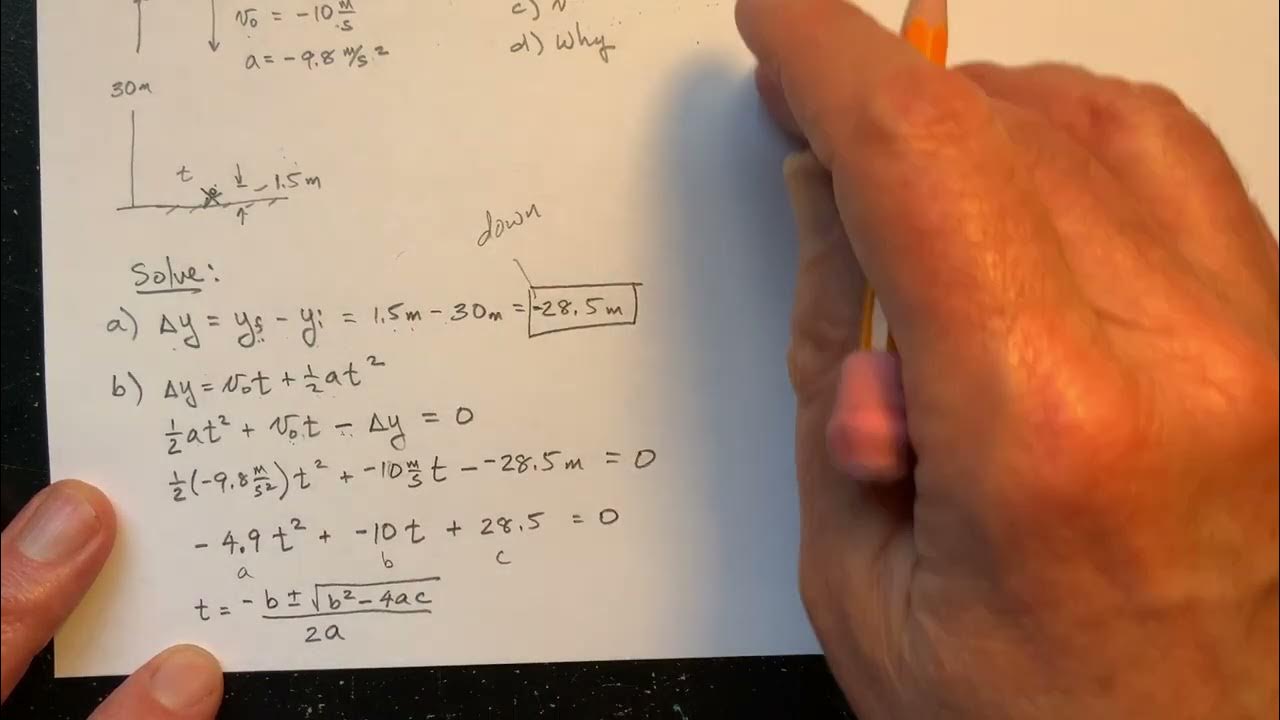 v₀ = -10 m/s
c) v
a = -9.8 m/s²
d) why
30m
t
1.5m
down
Solve:
a) Δy = yf - yi = 1.5m - 30m = -28.5m
b) Δy = v₀t + ½at²
½at² + v₀t - Δy = 0
½(-9.8 m/s²)t² + -10 m/s t - -28.5m = 0
- 4.9t² + -10t + 28.5 = 0
a b c
t = -b ± √b² - 4ac
2a